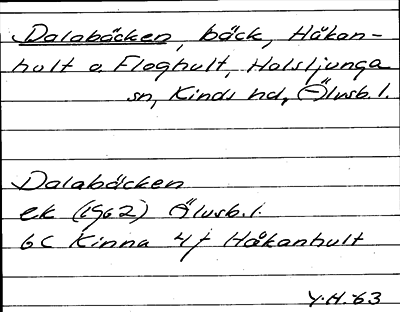 Dalabäcken, bäck, Håkan-
hult o. Floghult, Holsljunga
sn, Kinds hd, Älvsb. l.
Dalabäcken
ek (1962) Älvsb. l.
6C Kinna 4 f Håkanhult
Y.H. -63